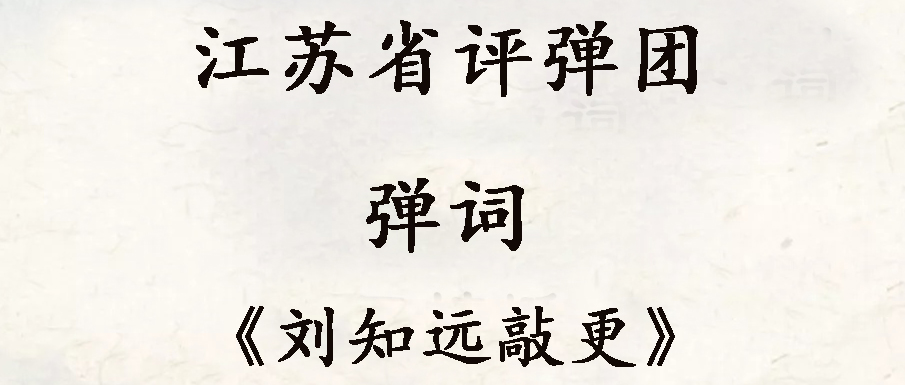 江苏省评弹团
弹词
《刘知远敲更》